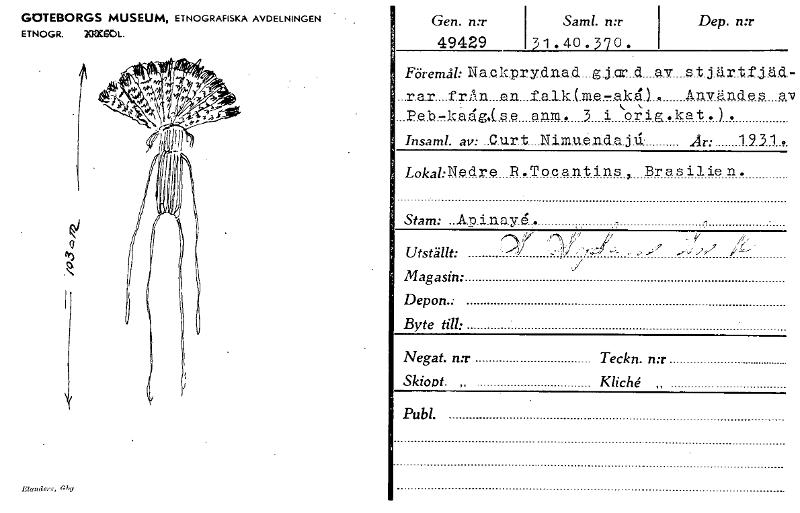 GÖTEBORGS MUSEUM, ETNOGRAFISKA AVDELNINGEN
ETNOGR.
103 cm
Elanders, Gbg
Gen. n:r Saml. n:r Dep. n:r
49429 31.40.370.
Föremål: Nackprydnad gjord av stjärtfjäd-
rar från en falk(me-aká). Användes av
Peb-kaág.(se anm. 3 i orig.kat.).
Insaml. av: Curt Nimuendajú År: 1931.
Lokal: Nedre R.Tocantins, Brasilien.
Stam: Apinayé.
Utställt:
Magasin:
Depon.:
Byte till:
Negat. n:r Teckn. n:r
Skiopt. „ Kliché „
Publ.